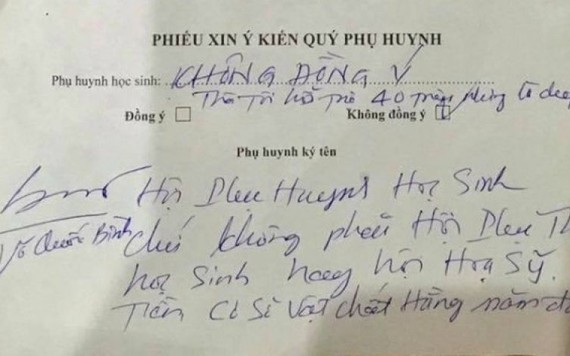 PHIẾU XIN Ý KIẾN QUÝ PHỤ HUYNH
Phụ huynh học sinh: KHÔNG ĐỒNG Ý
Thà Tôi hỗ trợ 40 triệu
Đồng ý ☐ Không đồng ý ☑
Phụ huynh ký tên
Hội Phụ Huynh Học Sinh
Võ Quốc Bình
chứ không phải Hội Phụ
học Sinh hay hội Hoạ Sỹ.
Tiền Cơ Sở Vật chất Hằng năm